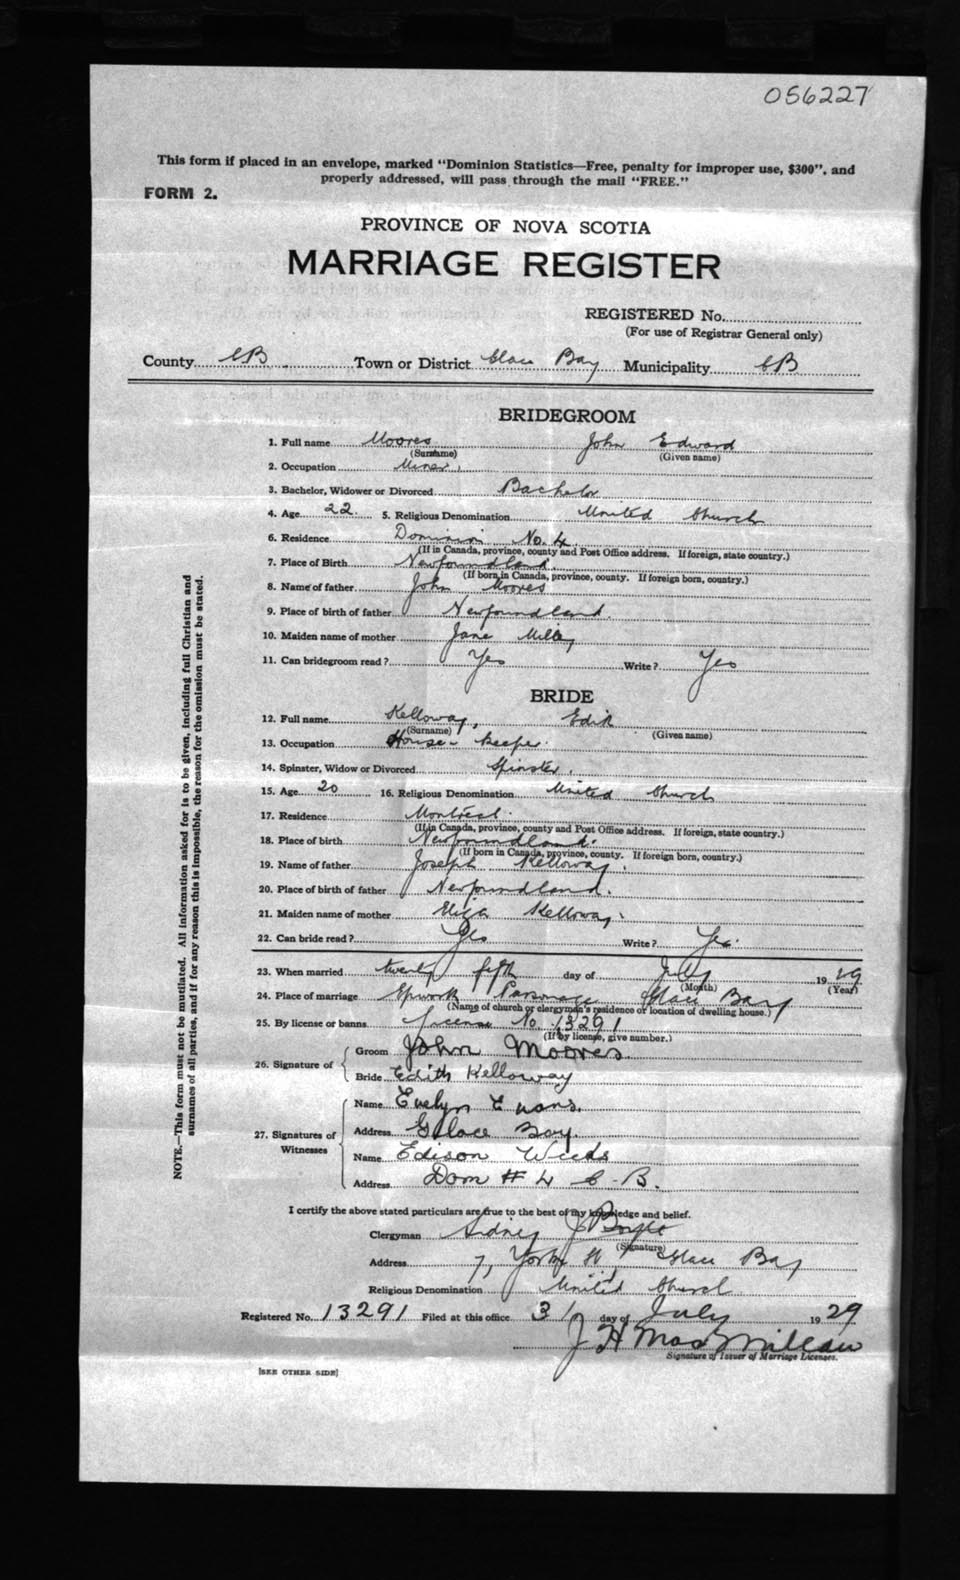 056227
This form if placed in an envelope, marked "Dominion Statistics—Free, penalty for improper use, $300", and
properly addressed, will pass through the mail "FREE."
FORM 2.
PROVINCE OF NOVA SCOTIA
MARRIAGE REGISTER
REGISTERED No.
(For use of Registrar General only)
County CB Town or District Glace Bay Municipality CB
BRIDEGROOM
1. Full name Moores John Edward
(Surname) (Given name)
2. Occupation Miner.
3. Bachelor, Widower or Divorced Bachelor
4. Age 22. 5. Religious Denomination United Church
6. Residence Dominion No. 4.
(If in Canada, province, county and Post Office address. If foreign, state country.)
7. Place of Birth Newfoundland
(If born in Canada, province, county. If foreign born, country.)
8. Name of father John Moores
9. Place of birth of father Newfoundland.
10. Maiden name of mother Jane
11. Can bridegroom read? Yes Write? Yes
BRIDE
12. Full name Kelloway, Edith
(Surname) (Given name)
13. Occupation House-keeper.
14. Spinster, Widow or Divorced Spinster.
15. Age 20 16. Religious Denomination United Church
17. Residence Montreal.
(If in Canada, province, county and Post Office address. If foreign, state country.)
18. Place of birth Newfoundland.
(If born in Canada, province, county. If foreign born, country.)
19. Name of father Joseph Kelloway.
20. Place of birth of father Newfoundland.
21. Maiden name of mother Eliza Kelloway.
22. Can bride read? Yes Write? Yes.
23. When married twenty fifth day of July 1929
(Month) (Year)
24. Place of marriage Epworth Parsonage Glace Bay
(Name of church or clergyman's residence or location of dwelling house.)
25. By license or banns License No. 13291
(If by license, give number.)
26. Signature of
Groom John Moores.
Bride Edith Kelloway
27. Signatures of Witnesses
Name Evelyn Evans.
Address Glace Bay.
Name Edison Weeds
Address Dom # 4 C.B.
I certify the above stated particulars are true to the best of my knowledge and belief.
Clergyman Sidney J
(Signature)
Address 7, York St, Glace Bay
Religious Denomination United Church
Registered No. 13291 Filed at this office 31 day of July 1929
J H MacMillan
Signature of Issuer of Marriage Licenses.
[SEE OTHER SIDE]
NOTE.—This form must not be mutilated. All information asked for is to be given, including full Christian and
surnames of all parties, and if for any reason this is impossible, the reason for the omission must be stated.